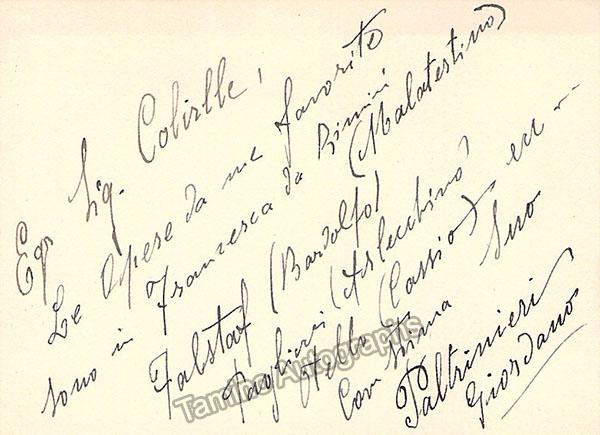 Egr Sig. Cobirlle,
Le Opere da me favorite
sono in Francesca da Rimini
(Malatestino)
Falstaf (Bardolfo)
Pagliacci (Arlecchino)
Hello (Cassio) ecc - -
Con stima Suo
Paltrinieri
Giordano
Tamino Autographs